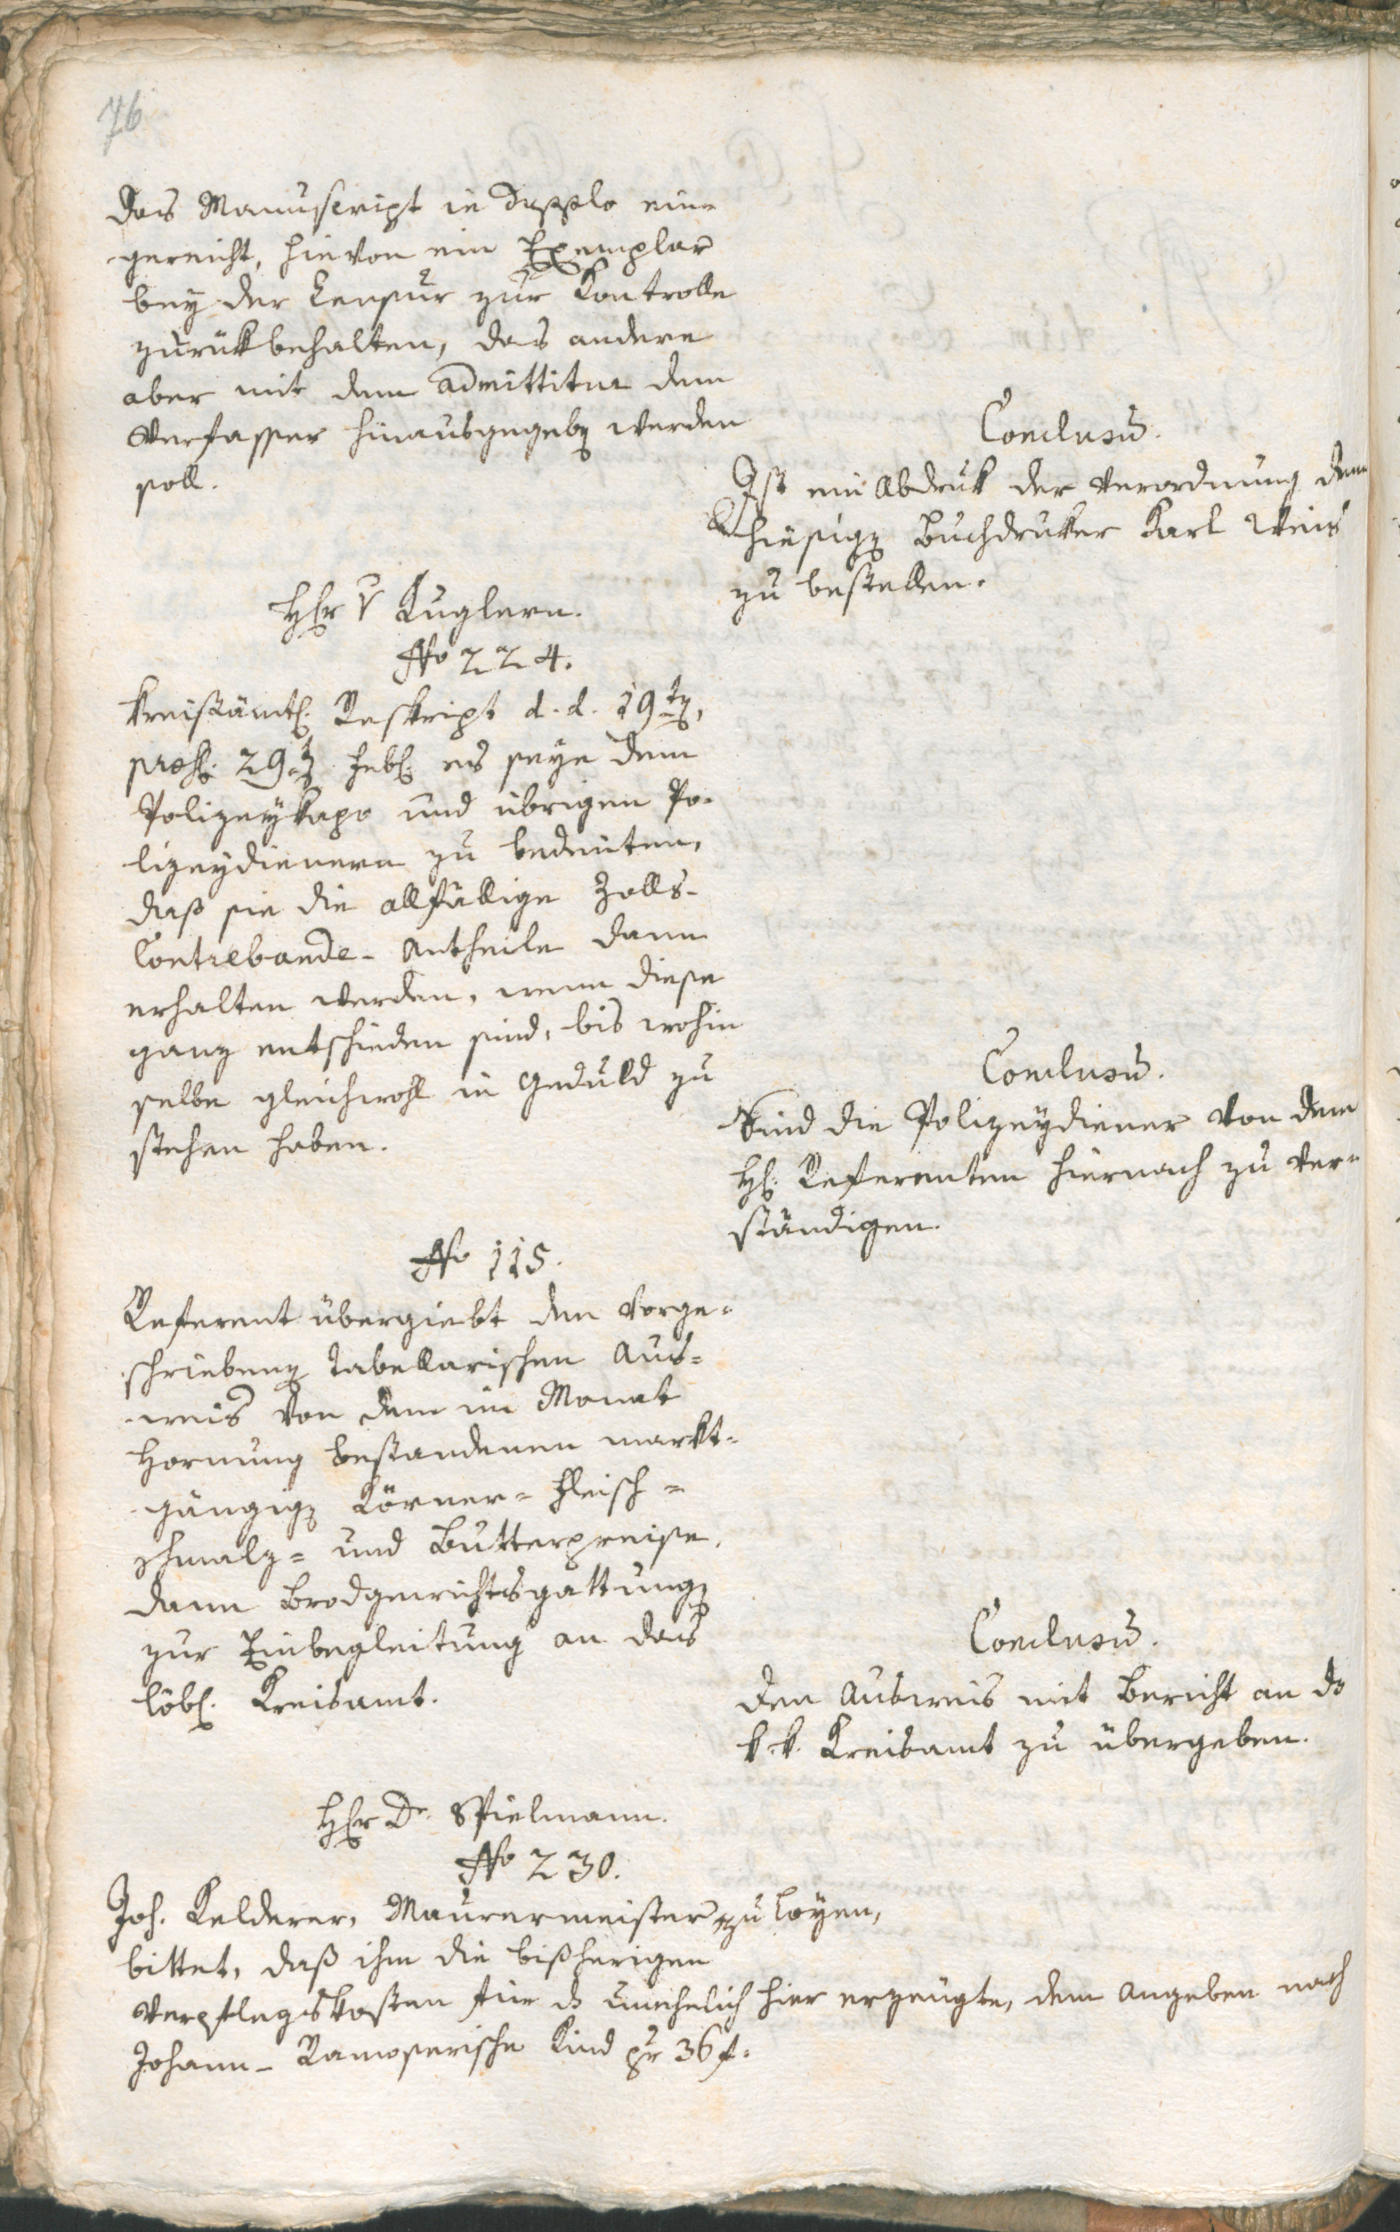 76
das Manuscript in dupplo ein=
gereicht, hievon ein Exemplar
bey der Censur zur Kontrolle
zurükbehalten, das andere
aber mit dem admittitur dem
Verfasser hinausgegeben werden
soll.
Conclusum.
Ist ein Abdruk der Verordnung dem
hiesigen Buchdruker Karl Weis
zu bestellen.
Herr v Kuglern.
No 224.
Kreisämtl. Reskript d. d. 19ten,
praes. 29ten Febr. es seye dem
Polizeykapo und übrigen Po=
lizeydienern zu bedeuten,
daß sie die allfällige Zolls-
Contrebande- Antheile dann
erhalten werden, wenn diese
ganz entschieden sind, bis wohin
selbe gleichwohl in Geduld zu
stehen haben.
Conclusum.
Sind die Polizeydiener von dem
H. Referenten hiernach zu ver=
ständigen.
No 115.
Referent übergiebt den vorge=
schriebenen tabellarischen Aus=
weis von dem im Monat
Hornung bestandenen markt=
gängigen Körner= Fleisch=
Schmalz= und Butterpreise,
dann Brodgewichtsgattungen
zur Einbegleitung an das
löbl. Kreisamt.
Conclusum.
Den Ausweis mit Bericht an das
k. k. Kreisamt zu übergeben.
Herr Dr. Spielmann.
No 230.
Joh. Kelderer, Maurermeister zu Loyen,
bittet, daß ihm die bißherigen
Verpflegskosten für das unehelich hier erzeugte, dem Angeben nach
Johann- Ramoserische Kind pr 36 f.